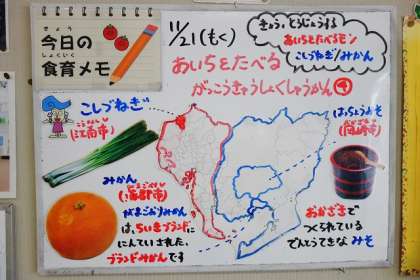 きょう
今日の
しょくいく
食育メモ
11/21(もく)
あいちをたべる
がっこうきゅうしょくしゅうかん④
きょう、とうじょうする
あいちをたべるモン
こしづねぎ/みかん
こしづねぎ
(江南市)
はっちょうみそ
(岡崎市)
みかん
がまごおりみかん
は、ちいきブランド
ににんていされた、
ブランドみかんです
おかざきで
つくられている
でんとうてきなみそ